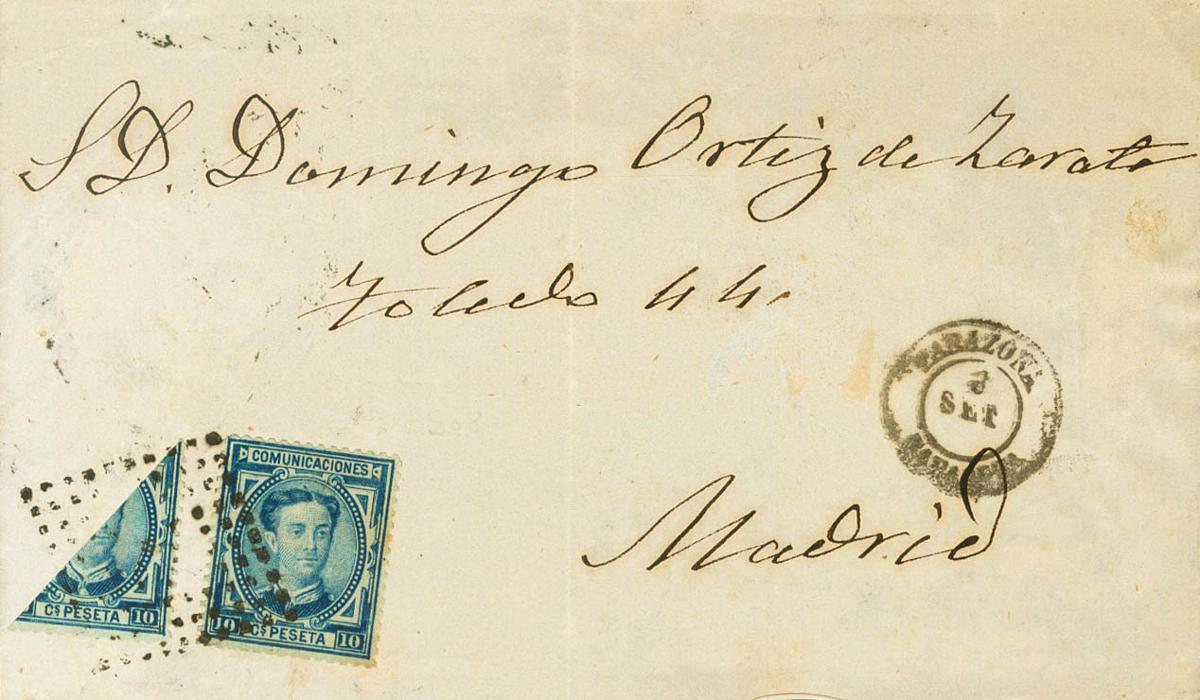 S D. Domingo Ortiz de Zarate
Toledo 44.
TARAZONA
SET
Madrid
COMUNICACIONES
10 CS PESETA 10
CS PESETA 10